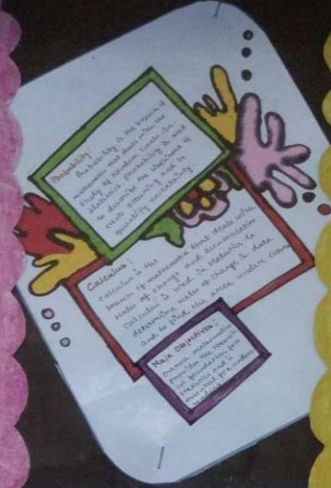 Probability:
Probability is the branch of
mathematics that deals with the
study of random events. In
statistics, probability is used
to describe the likelihood of
events occurring and to
quantify uncertainty
Calculus:
Calculus is the
branch of mathematics that deals with
rates of change and accumulation
Calculus is used in statistics to
determine rates of change in data
and to find the area under curves
Main Objectives:
Overall mathematics
provides the
foundation for
statistics and is
essential for